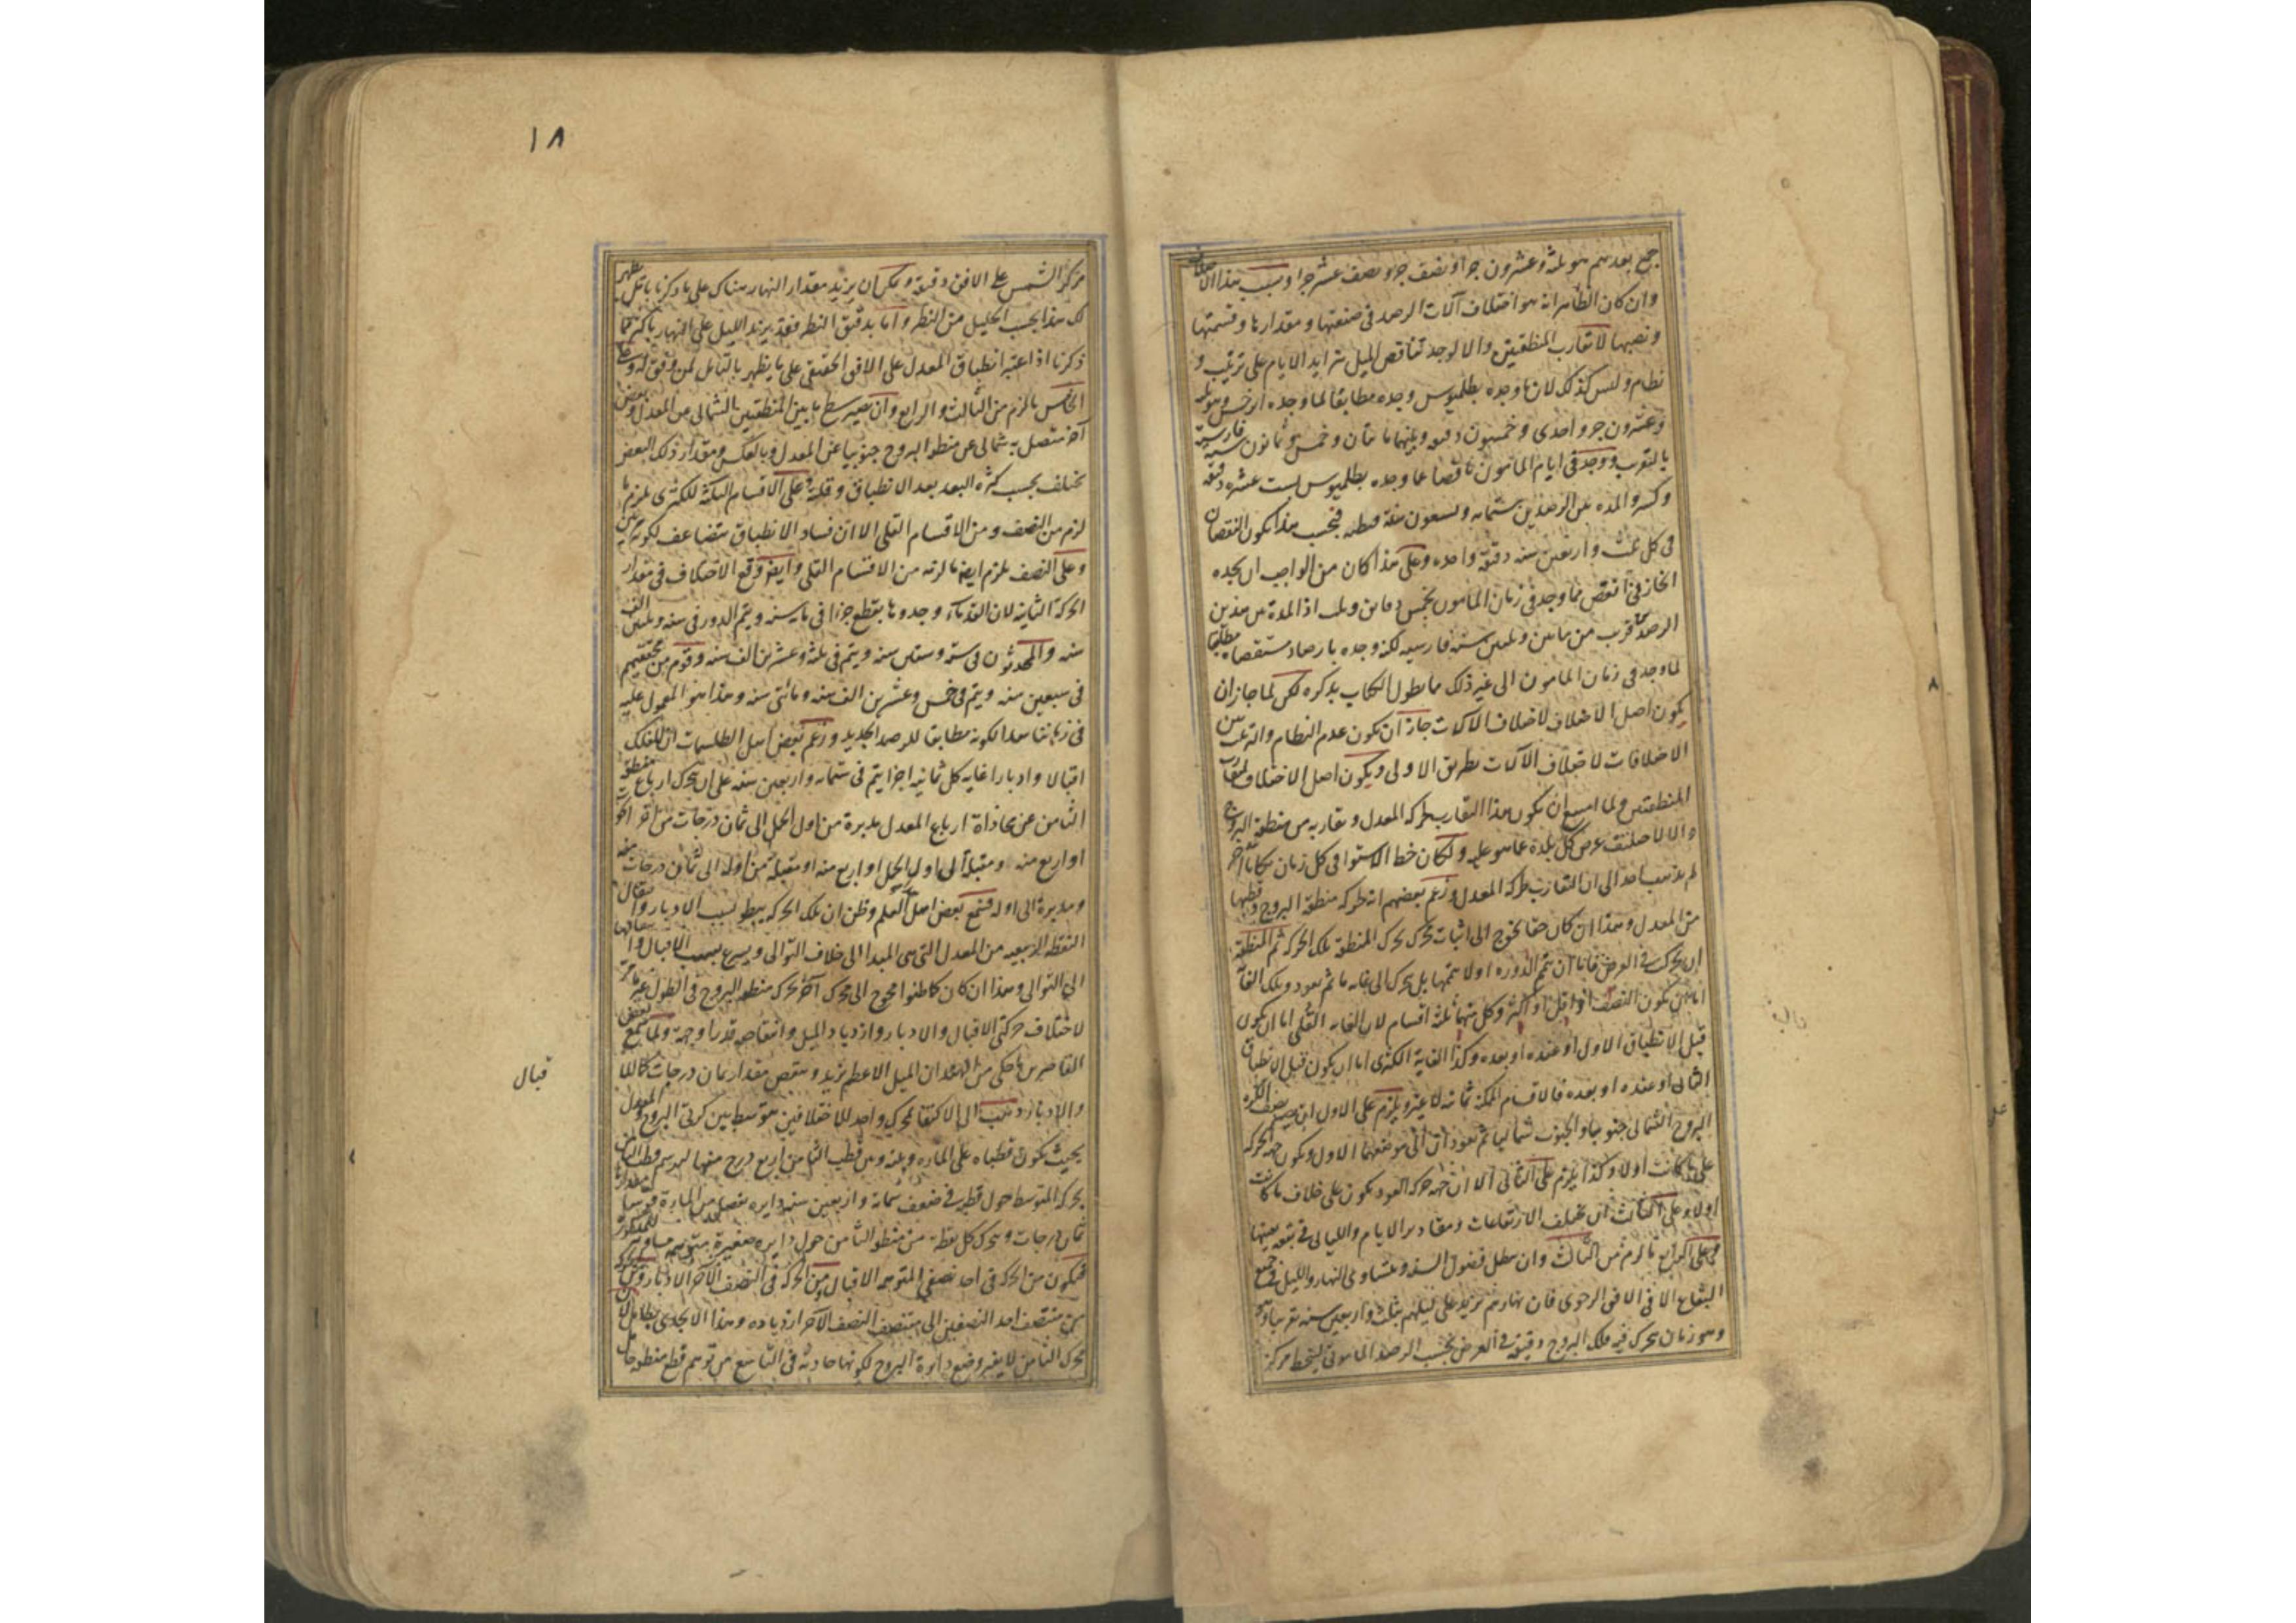 جميع بعدهم هو ثلثة وعشرون جزءا ونصف جزء ونصف عشر جزء وسبب هذا الاختلاف
وان كان الظاهر انه هو اختلاف آلات الرصد في صنعتها ومقدارها وقسمتها
ونصبها لا تقارب المنطقتين والا لوجد تناقص الميل بتزايد الايام على ترتيب و
نظام وليس كذلك لان ما وجده بطلميوس وجده مطابقا لما وجده ابرخس وهو ثلثة
وعشرون جزء واحدى وخمسون دقيقه وبينهما مائتان وخمس وثمانون سنة فارسية
بالتقريب ووجد في ايام المامون ناقصا عما وجده بطلميوس بست عشرة دقيقة
وكسر والمده بين الرصدين ستمايه وتسعون سنة قبطيه فبحسب هذا يكون النقصان
في كل ثلث واربعين سنه دقيقة واحده وعلى هذا كان من الواجب ان يجده
الخازني انقص مما وجد في زمان المامون بخمس دقائق وثلث اذ المدة بين هذين
الرصدين قريب من مائتين وثلثين سنة فارسيه لكنه وجده بارصاد مستقصاة مطابقا
لما وجد في زمان المامون الى غير ذلك مما يطول الكتاب بذكره لكن لما جاز ان
يكون اصل الاختلاف لاختلاف الآلات جاز ان يكون عدم النظام والترتيب بين
الاختلافات لاختلاف الآلات بطريق الاولى ويكون اصل الاختلاف لتقارب
المنطقتين ولما امتنع ان يكون هذا التقارب بحركة المعدل وتقاربه من منطقة البروج
والا لاختلف عرض كل بلدة عما هو عليه ولكان خط الاستوا في كل زمان مكانا آخر
لم يذهب احد الى ان التقارب بحركة المعدل وزعم بعضهم انه بحركة منطقة البروج وقطبها
من المعدل وهذا ان كان حقا يحوج الى اثبات محرك يحرك المنطقة تلك الحركة ثم المنطقة
ان تحركت في العرض فاما ان تتم الدوره او لا تتمها بل تحرك الى غاية ما ثم تعود وتلك الغاية
اما ان يكون النصف او اقل او اكثر وكل منهما ثلثة اقسام لان الغاية القلى اما ان يكون
قبل الانطباق الاول او عنده او بعده وكذا الغاية الكثرى اما ان يكون قبل الانطباق
الثاني او عنده او بعده فالاقسام الممكنة ثمانية لا غير ويلزم على الاول ان يصير نصف الكرة
البروج الشمالي جنوبيا والجنوبي شماليا ثم يعودان الى موضعهما الاول ويكون جهة الحركة
على ما كانت اولا وكذا يلزم على الثاني الا ان جهة حركة العود يكون على خلاف ما كانت
اولا وعلى الثالث ان يختلف الارتفاعات ومقادير الايام والليالي في بقعة بعينها
وعلى الرابع ما لزم من الثالث وان يبطل فصول السنة ويتساوى النهار والليل في جميع
البقاع الا في الافق الرحوى فان نهارهم يزيد على ليلهم بثلث واربعين سنة تقريبا
وهو زمان تحرك فيه فلك البروج دقيقة في العرض بحسب الرصد المامونى لينحط مركز
١٨
مركز الشمس على الافق دقيقة ويمكن ان يزيد مقدار النهار هناك على ما ذكرنا بتأمل يظهر
لك هذا بحسب الجليل من النظر واما بدقيق النظر فقد يزيد الليل على النهار باكثر مما
ذكرنا اذا اعتبر انطباق المعدل على الافق الحقيقي على ما يظهر بالتامل لمن وفق له وعلى
الخامس ما لزم من الثالث والرابع وان يصير سطح ما بين المنطقتين الشمالي من المعدل وبعض
آخر متصل به شمالي عن منطقة البروج جنوبيا عن المعدل وبالعكس ومقدار ذلك البعض
يختلف بحسب كثرة البعد بعد الانطباق وقلته وعلى الاقسام الثلثة للكثرى يلزم ما
لزم من النصف ومن الاقسام القلى الا ان فساد الانطباق يتضاعف لكونه مرتين
وعلى النصف يلزم ايضا ما لزمه من الاقسام القلى وايضا وقع الاختلاف في مقدار
الحركة الثانية لان القدماء وجدوها يقطع جزءا في مايه سنه ويتم الدور في ستة وثلثين الف
سنه والمحدثون في ستة وستين سنه ويتم في ثلثة وعشرين الف سنه وقوم من محققيهم
في سبعين سنه ويتم في خمس وعشرين الف سنة ومائتي سنه وهذا هو المعمول عليه
في زماننا هذا لكونه مطابقا للرصد الجديد وزعم بعض اهل الطلسمات ان للفلك
اقبالا وادبارا غاية كل ثمانية اجزا يتم في ستمايه واربعين سنه على ان يتحرك ارباع منطقة
الثامن عن محاذاة ارباع المعدل مدبرة من اول الحمل الى ثمان درجات من آخر الحوت
او اربع منه ومقبلة الى اول الحمل او اربع منه او مقبلة من اوله الى ثمان درجات منه
ومدبرة الى اوله فسمع بعض اهل العلم وظن ان تلك الحركة يبطو بسبب الادبار وانتقال
النقطة الربيعيه من المعدل التي هي المبدا الى خلاف التوالي ويسرع بسبب الاقبال وانتقالها
الى التوالي وهذا ان كان كما ظنوا محوج الى محرك آخر يحرك منطقة البروج في الطول غير ما مر
لاختلاف حركتي الاقبال والادبار وازدياد الميل وانتقاصه قدرا وجهة ولما سمع بعض
القاصرين ما حكى من ان الميل الاعظم يزيد وينقص مقدار ثمان درجات كالاقبال
والادبار ذهب الى الاكتفا بمحرك واحد للاختلافين متوسط بين كرتي البروج والمعدل
بحيث يكون قطباه على الماره وبينه وبين قطب الثامن اربع درج منها ليرسم قطب الثامن
بحركة المتوسط حول قطبه في ضعف ستمائة واربعين سنه دايره يفصل من المارة قوسا مقدارها
ثمان درجات ويتحرك كل نقطة من منطقة الثامن حول دايره صغيرة متوهمه مساوية للمذكورة
فيكون من الحركة في احد نصفي المتوهمه الاقبال ومن الحركة في النصف الآخر الادبار
من منتصف احد النصفين الى منتصف النصف الآخر ازدياده وهذا لا يجدى بطائل لان
محرك الثامن لا يغير وضع دايرة البروج لكونها حادثه في التاسع من توهم قطع منطقة
قبال